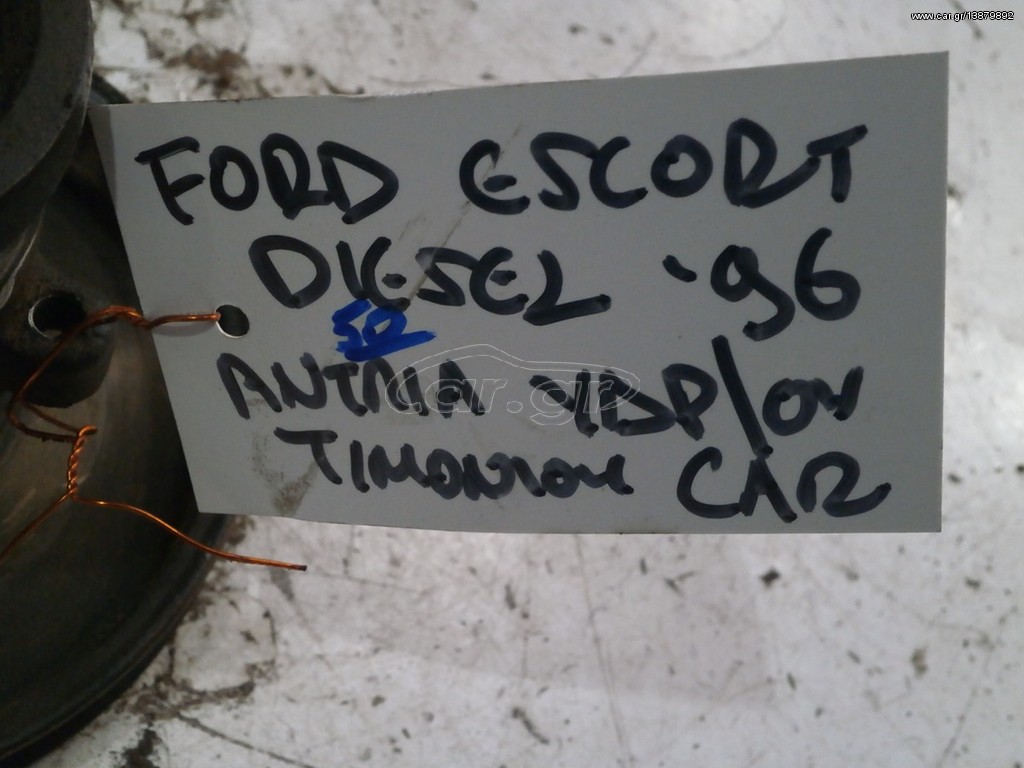 www.car.gr/13879892
FORD ESCORT
DIESEL '96
50
ΑΝΤΛΙΑ ΥΔΡ/ΟΥ
car.gr
ΤΙΜΟΝΙΟΥ CAR